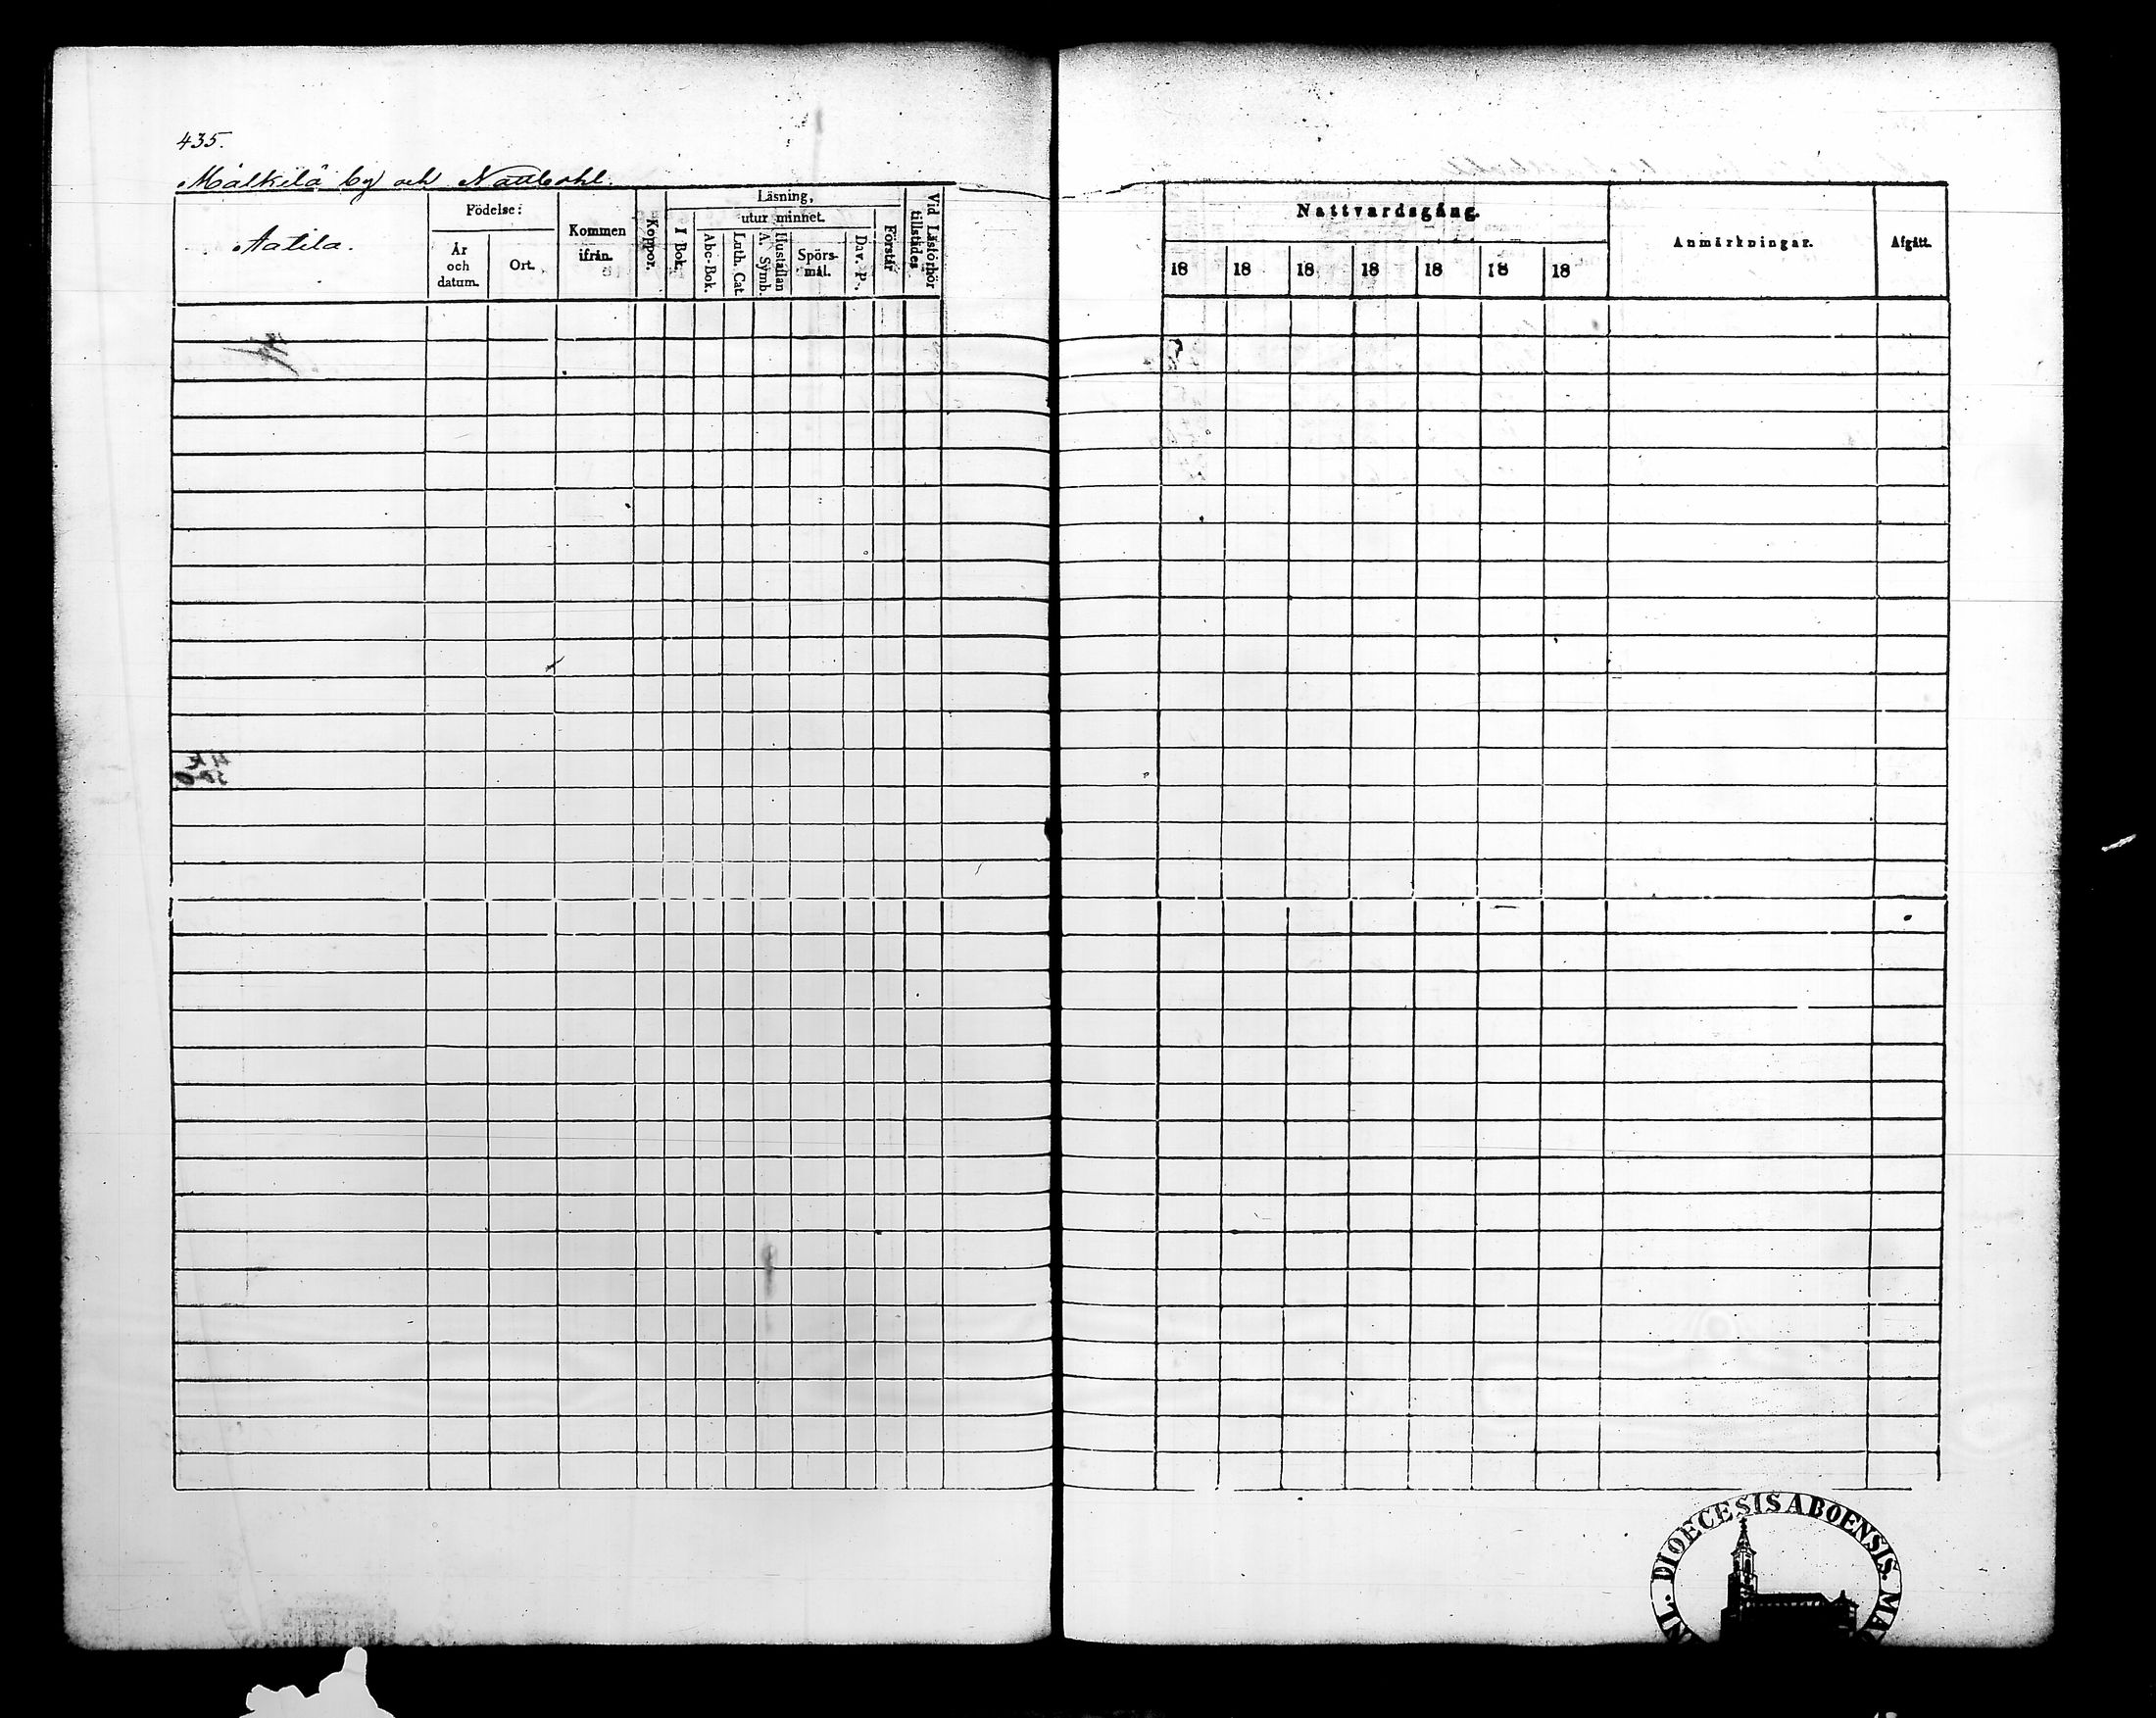 435.
Målkilä by och Nattbohl.
Aatila.
Födelse:
År och datum.
Ort.
Kommen ifrån.
Koppor.
Läsning,
utur minnet.
I Bok.
Abc-Bok.
Luth. Cat.
Hustaflan A. Symb.
Spörs-mål.
Dav. P.
Förstår
Vid Läsförhör tillstädes
Nattvardsgång.
18 18 18 18 18 18 18
Anmärkningar.
Afgått.
DIOECESIS ABOENSIS. MA